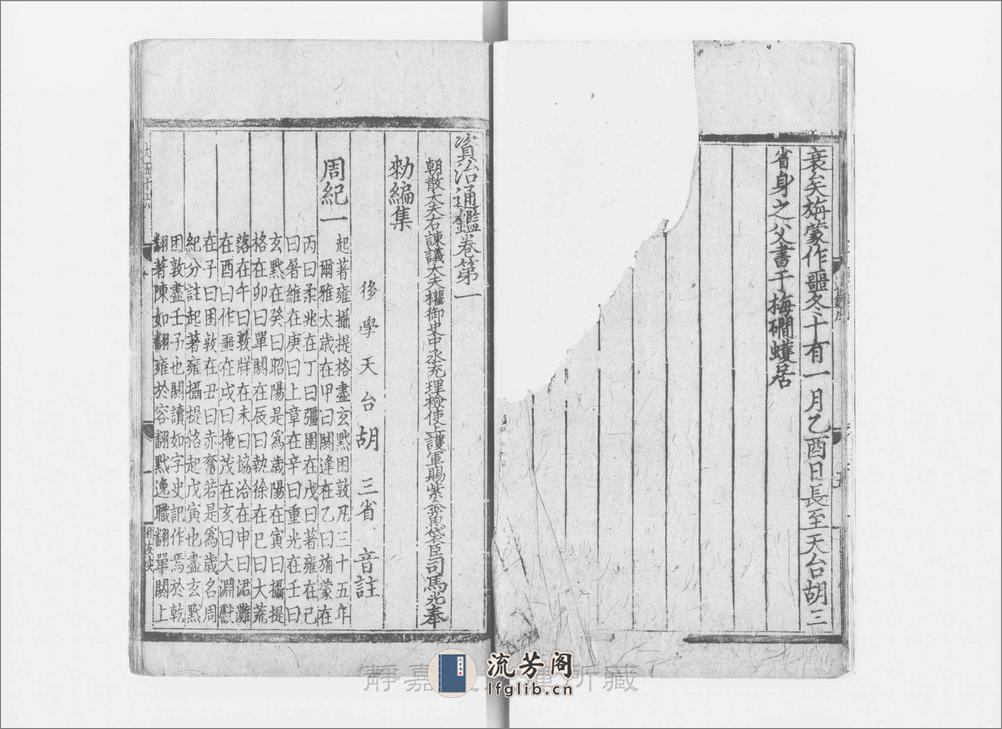 衰矣旃蒙作噩冬十有一月乙酉日長至天台胡三
省身之父書于梅磵蠖居
資治通鑑卷第一
朝散大夫右諫議大夫權御史中丞充理檢使上護軍賜紫金魚袋臣司馬光奉
勑編集
後學天台胡三省音註
周紀一
起著雍攝提格盡玄黓困敦凡三十五年
爾雅太歲在甲曰閼逢在乙曰旃蒙在
丙曰柔兆在丁曰彊圉在戊曰著雍在己
曰屠維在庚曰上章在辛曰重光在壬曰
玄黓在癸曰昭陽是爲歲陽在寅曰攝提
格在卯曰單閼在辰曰執徐在巳曰大荒
落在午曰敦牂在未曰協洽在申曰涒灘
在酉曰作噩在戌曰掩茂在亥曰大淵獻
在子曰困敦在丑曰赤奮若是爲歲名周
紀分註起著雍攝提格起戊寅也盡玄黓
困敦盡壬子也閼讀如字史記作焉於乾
翻著陳如翻雍於容翻黓逸職翻單閼上
靜嘉 所藏
流芳阁
lfglib.cn